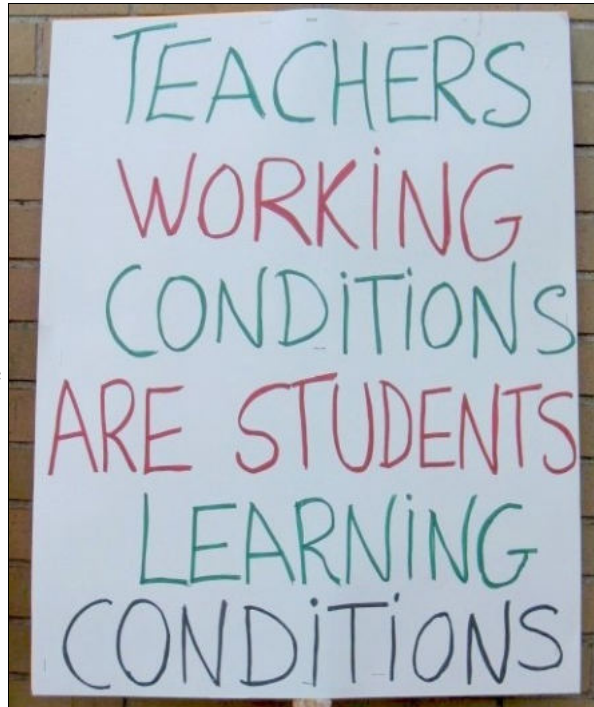 TEACHERS
WORKiNG
CONDiTiONS
ARE STUDENTS
LEARNiNG
CONDiTiONS